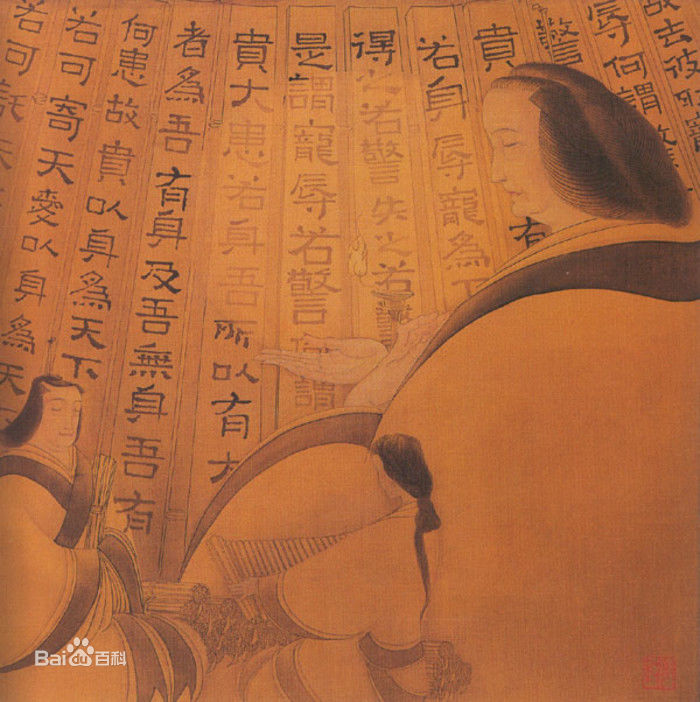 故去彼
辱何謂
警
貴
有
若身辱寵爲下
得之若警失之若
是謂寵辱若警何謂
貴大患若身吾所以有大
者爲吾有身及吾無身吾有
何患故貴以身爲天下
若可寄天愛以身爲天
若可託天
Bai百科